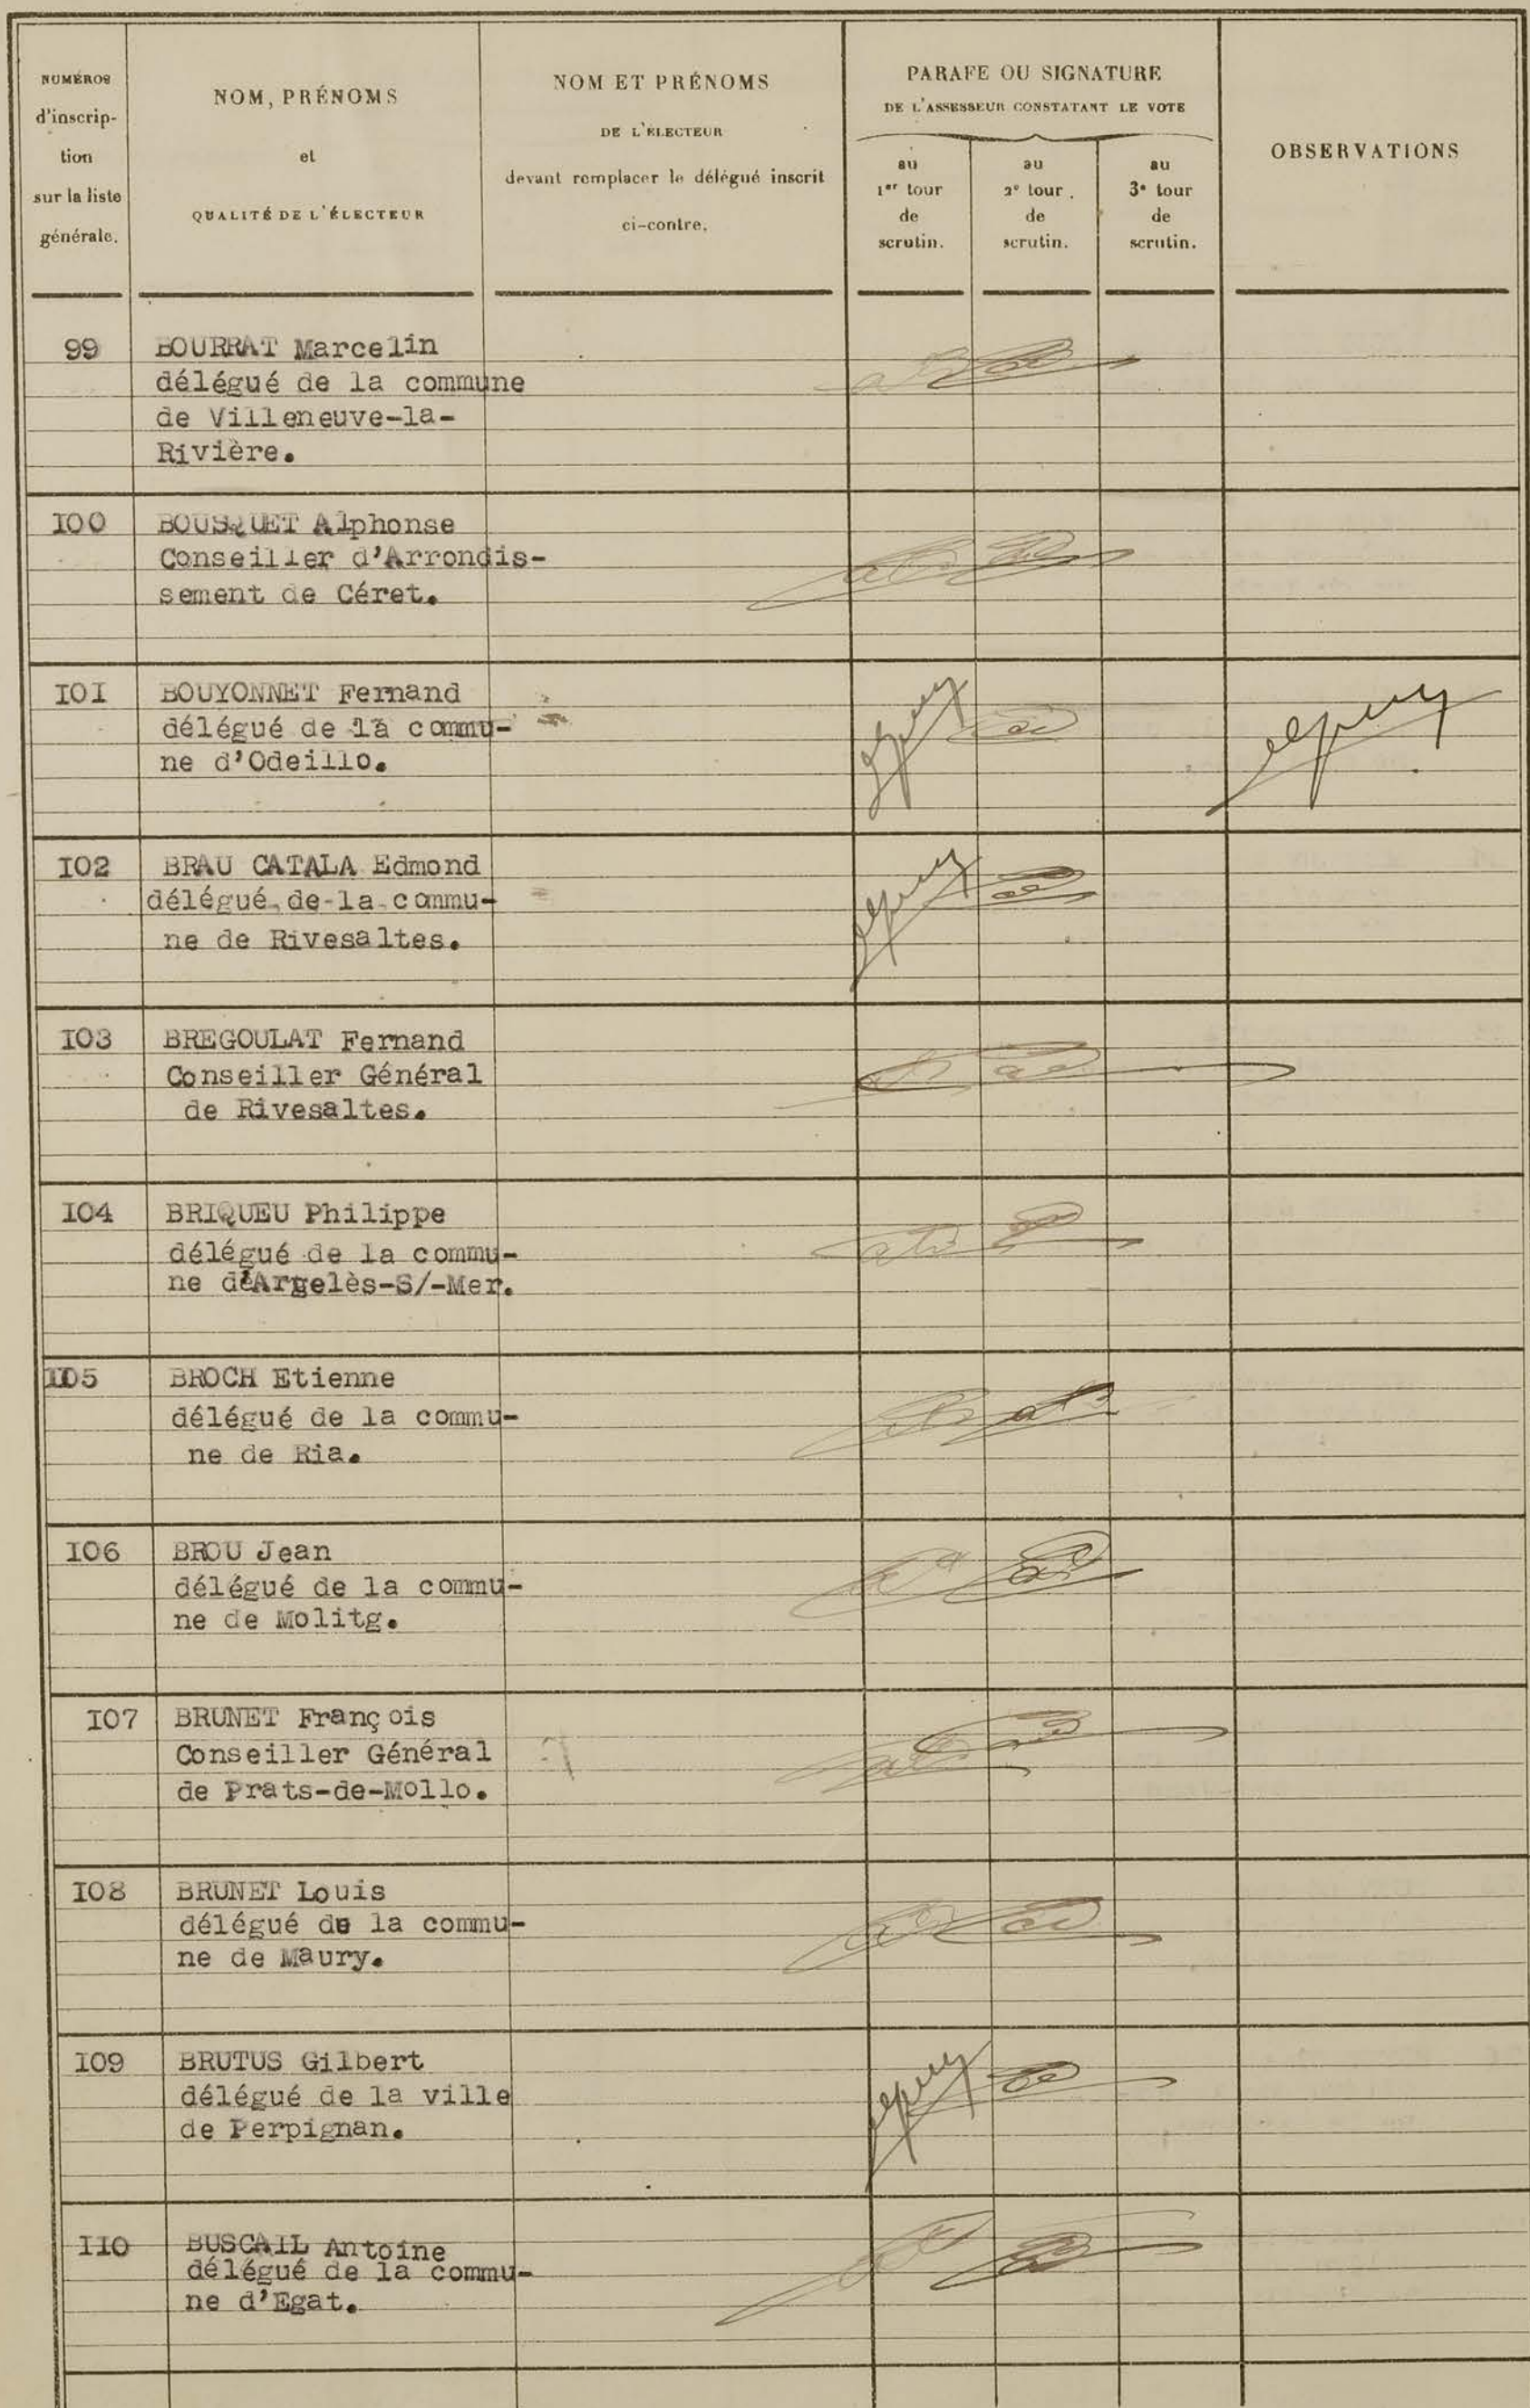 NUMÉROS
d'inscrip-
tion
sur la liste
générale.
NOM, PRÉNOMS
et
QUALITÉ DE L'ÉLECTEUR
NOM ET PRÉNOMS
DE L'ÉLECTEUR
devant remplacer le délégué inscrit
ci-contre.
PARAFE OU SIGNATURE
DE L'ASSESSEUR CONSTATANT LE VOTE
au
1er tour
de
scrutin.
au
2e tour.
de
scrutin.
au
3e tour
de
scrutin.
OBSERVATIONS
99 BOURRAT Marcelin
délégué de la commune
de Villeneuve-la-
Rivière.
I00 BOUSQUET Alphonse
Conseiller d'Arrondis-
sement de Céret.
I0I BOUYONNET Fernand
délégué de la commu-
ne d'Odeillo.
I02 BRAU CATALA Edmond
délégué de la commu-
ne de Rivesaltes.
I03 BREGOULAT Fernand
Conseiller Général
de Rivesaltes.
I04 BRIQUEU Philippe
délégué de la commu-
ne d'Argelès-S/-Mer.
I05 BROCH Etienne
délégué de la commu-
ne de Ria.
I06 BROU Jean
délégué de la commu-
ne de Molitg.
I07 BRUNET François
Conseiller Général
de Prats-de-Mollo.
I08 BRUNET Louis
délégué de la commu-
ne de Maury.
I09 BRUTUS Gilbert
délégué de la ville
de Perpignan.
II0 BUSCAIL Antoine
délégué de la commu-
ne d'Egat.